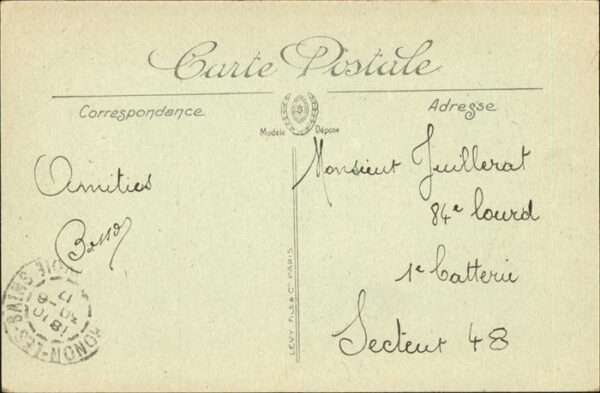 Carte Postale
Correspondance
Adresse
Modèle Déposé
Amitiés
Monsieur Juillerat
84e lourd
1e Batterie
Secteur 48
LEVY FILS & Cie PARIS
-LES-BAINS
18 10
20-8
17